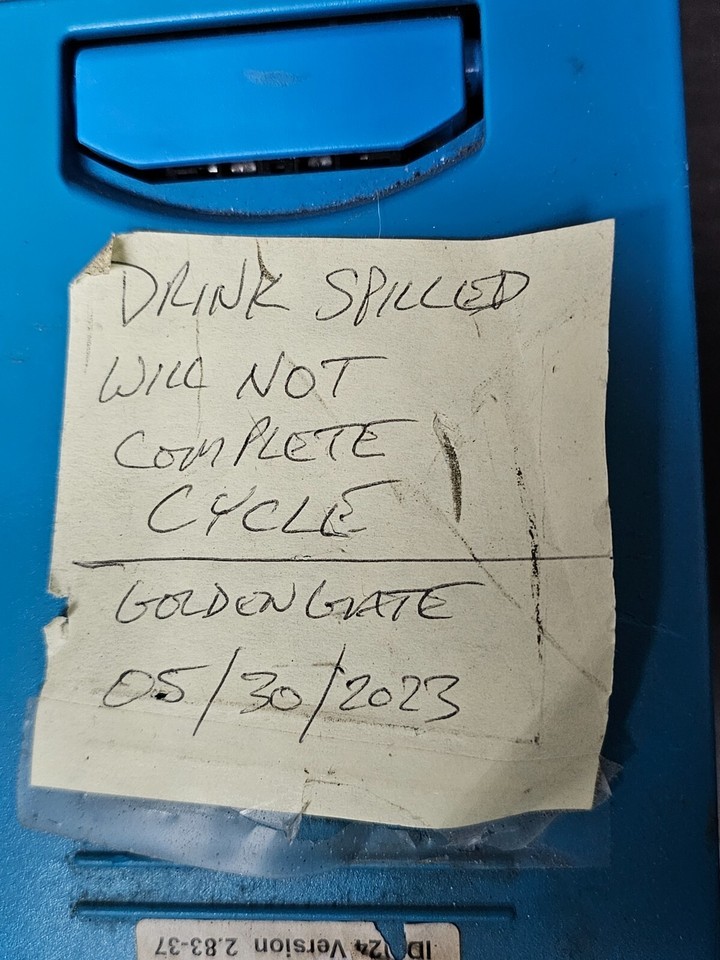 DRINK SPILLED
WILL NOT
COMPLETE
CYCLE
GOLDEN GATE
05/30/2023
Version 2.83-37